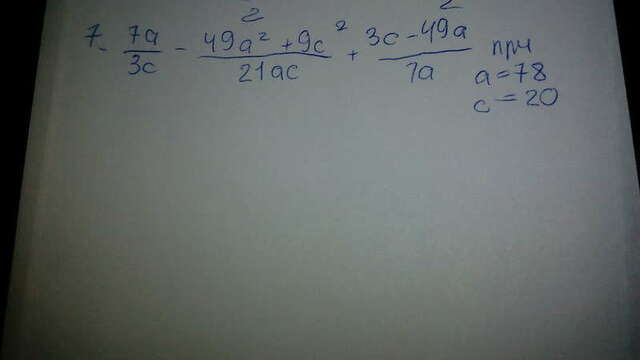 7. 7a/3c - 49a² + 9c²/21ac + 3c - 49a/7a при
a = 78
c = 20